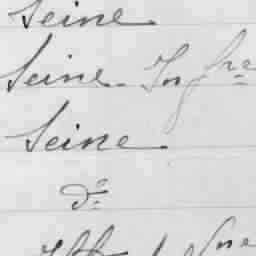 Seine
Seine. Infre
Seine
do